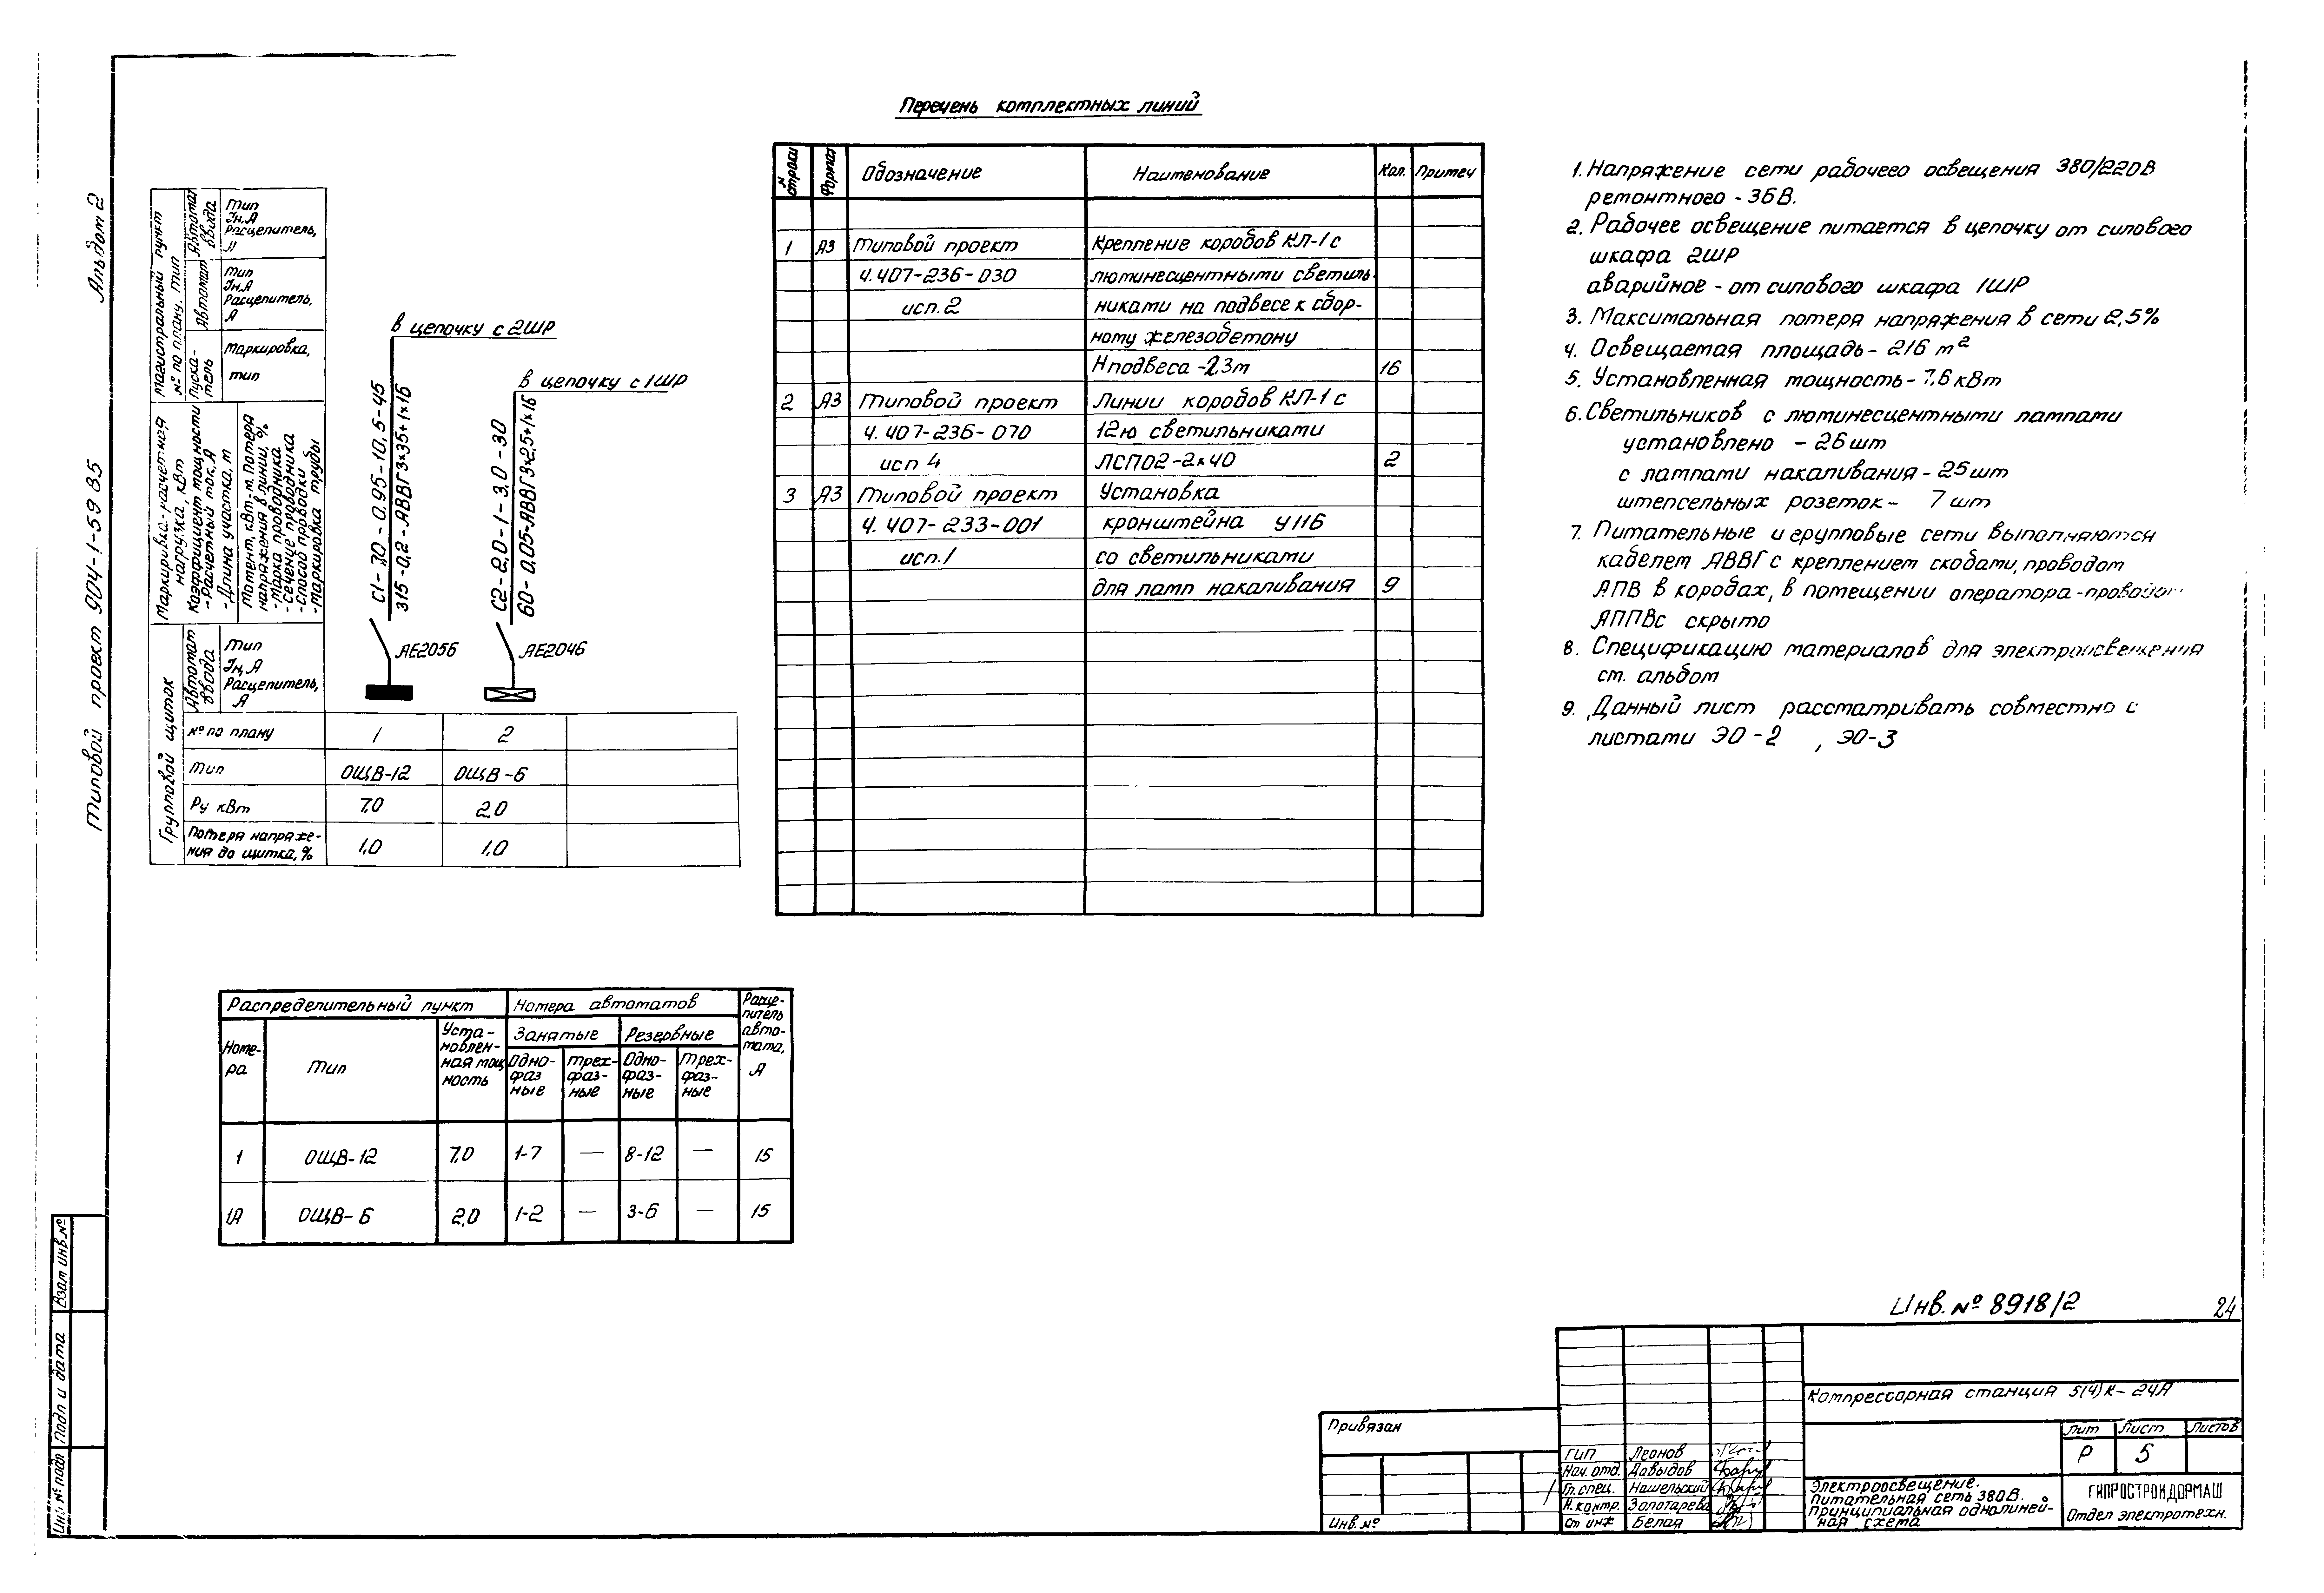 Альбом 2
Типовой проект 904-1-59 85
Перечень комплектных линий
№ строки
Формат
Обозначение
Наименование
Кол.
Примеч
1 А3 Типовой проект Крепление коробов КЛ-1 с
4.407-236-030 люминесцентными светиль-
исп. 2 никами на подвесе к сбор-
ному железобетону
Н подвеса -2,3м 16
2 А3 Типовой проект Линии коробов КЛ-1 с
4.407-236-070 12ю светильниками
исп 4 ЛСП02-2х40 2
3 А3 Типовой проект Установка
4.407-233-001 кронштейна У116
исп.1 со светильниками
для ламп накаливания 9
1. Напряжение сети рабочего освещения 380/220В
ремонтного - 36В.
2. Рабочее освещение питается в цепочку от силового
шкафа 2ШР
аварийное - от силового шкафа 1ШР
3. Максимальная потеря напряжения в сети 2,5%
4. Освещаемая площадь - 216 м²
5. Установленная мощность - 7,6 кВт
6. Светильников с люминесцентными лампами
установлено - 26 шт
с лампами накаливания - 25 шт
штепсельных розеток - 7 шт
7. Питательные и групповые сети выполняются
кабелем АВВГ с креплением скобами, проводом
АПВ в коробах, в помещении оператора - проводом
АППВс скрыто
8. Спецификацию материалов для электроосвещения
см. альбом
9. Данный лист рассматривать совместно с
листами ЭО-2 , ЭО-3
Магистральный пункт
№ по плану. тип
Автомат ввода
Тип
Iн,А
Расцепитель,
А
Автомат
Тип
Iн,А
Расцепитель,
А
Пуска-
тель
Маркировка,
тип
Маркировка-расчетная
нагрузка, кВт
Коэффициент мощности
-Расчетный ток, А
-Длина участка, м
Момент, кВт-м. Потеря
напряжения в линии, %
-Марка проводника
-Сечение проводника
-Способ проводки
-Маркировка трубы
в цепочку с 2ШР
С1-7,0-0,95-10,5-45
315-0,2-АВВГ3х35+1х16
в цепочку с 1ШР
С2-2,0-1-3,0-30
60-0,05-АВВГ3х2,5+1х16
АЕ2056
АЕ2046
Групповой щиток
Автомат
ввода
Тип
Iн,А
Расцепитель,
А
№ по плану 1 2
Тип ОЩВ-12 ОЩВ-6
Ру кВт 7,0 2,0
Потеря напряже-
ния до щитка, % 1,0 1,0
Распределительный пункт
Номера автоматов
Расце-
питель
авто-
мата,
А
Номе-
ра
Тип
Уста-
новлен-
ная мощ
ность
Занятые
Резервные
Одно-
фаз
ные
Трех-
фаз-
ные
Одно-
фаз-
ные
Трех-
фаз-
ные
1 ОЩВ-12 7,0 1-7 — 8-12 — 15
1А ОЩВ-6 2,0 1-2 — 3-6 — 15
Инв. № 8918/2
24
Компрессорная станция 5(4)К-24А
Лит Лист Листов
Р 5
Электроосвещение.
Питательная сеть 380В.
Принципиальная однолиней-
ная схема
ГИПРОСТРОЙДОРМАШ
Отдел электротехн.
Привязан
Инв. №
ГИП Леонов
Нач. отд. Давыдов
Гл. спец. Нашельский
Н. контр. Золотарева
Ст инж Белая
Взам инв №
Подп и дата
Инв № подл